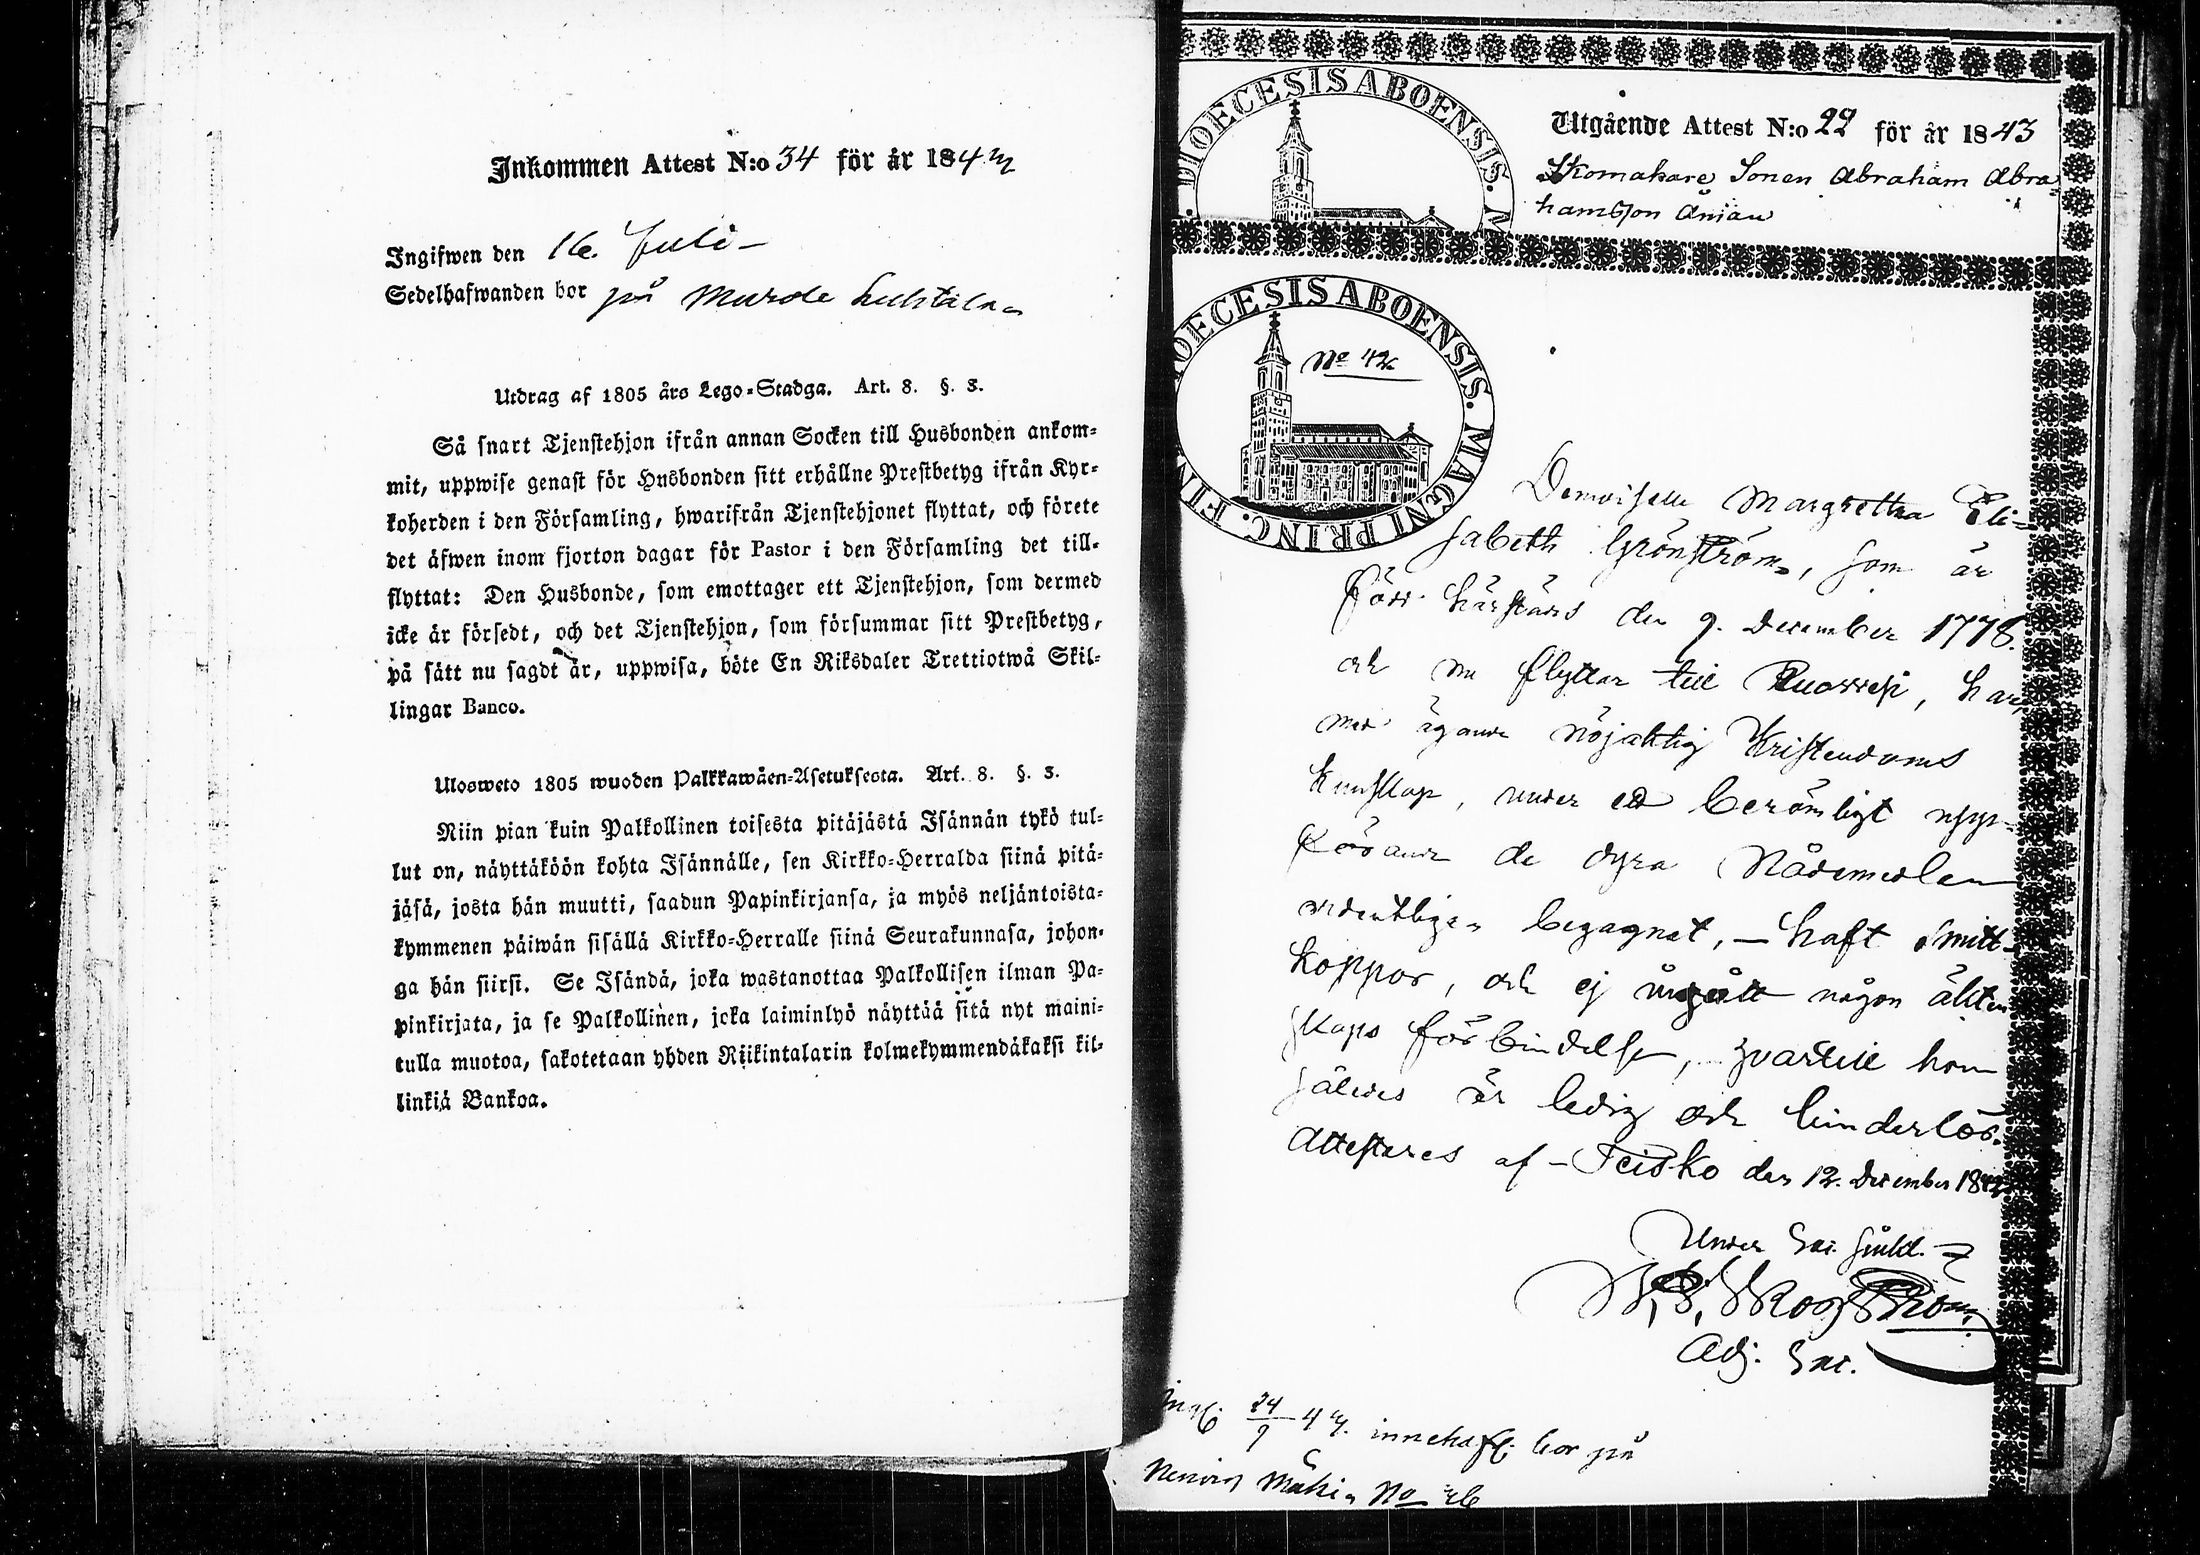 Inkommen Attest N:o 34 för år 184
Ingifwen den 16. Juli
Sedelhafwanden bor på Murole
Utdrag af 1805 års Lego-Stadga. Art. 8. §. 3.
Så snart Tjenstehjon ifrån annan Socken till Husbonden ankom-
mit, uppwise genast för Husbonden sitt erhållne Prestbetyg ifrån Kyr-
koherden i den Församling, hwarifrån Tjenstehjonet flyttat, och förete
det äfwen inom fjorton dagar för Pastor i den Församling det till-
flyttat: Den Husbonde, som emottager ett Tjenstehjon, som dermed
icke är försedt, och det Tjenstehjon, som försummar sitt Prestbetyg,
på sätt nu sagdt är, uppwisa, böte En Riksdaler Trettiotwå Skil-
lingar Banco.
Ulosweto 1805 wuoden Palkkawäen-Asetuksesta. Art. 8. §. 3.
Niin pian kuin Palkollinen toisesta pitäjästä Isännän tykö tul-
lut on, näyttäköön kohta Isännälle, sen Kirkko-Herralda siinä pitä-
jäsä, josta hän muutti, saadun Papinkirjansa, ja myös neljäntoista-
kymmenen päiwän sisällä Kirkko-Herralle siinä Seurakunnasa, johon-
ga hän siirsi. Se Isändä, joka wastanottaa Palkollisen ilman Pa-
pinkirjata, ja se Palkollinen, joka laiminlyö näyttää sitä nyt maini-
tulla muotoa, sakotetaan yhden Riikintalarin kolmekymmendäkaksi kil-
linkiä Bankoa.
DIOECESIS ABOENSIS. M
Utgående Attest N:o 22 för år 1843
Skomakare Sonen Abraham Abra-
hamsson
OECESIS ABOENSIS. MAGNI PRINC. FIN
No 42
Demoiselle Margretha Eli-
sabeth Grönström, som är
född härstädes den 9. December 1778.
och nu flyttar till Ruovesi, har,
med ägande nöjaktig Kristendoms
kunskap, under ett berömligt upp-
förande de dyra Nådemedlen
ordentligen begagnat, – haft Smitt-
koppor, och ej ingått någon äkten
skaps förbindelse, hvartill hon
således är ledig och hinderlös.
Attesteres af – Teisko den 12. December 1842
Under Sac. Skogström
Adj. Sac.
Ingf. 24/9 innehaf. bor på
No